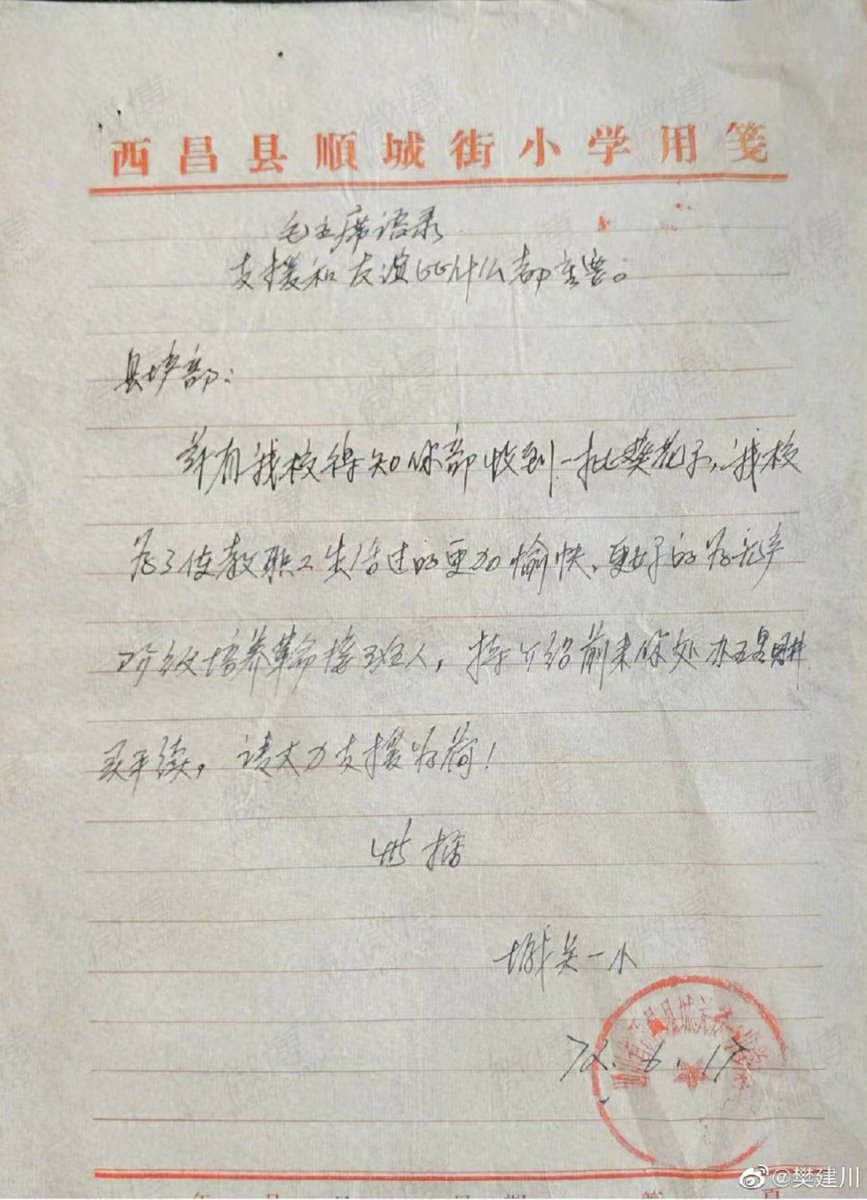 西昌县顺城街小学用笺
毛主席语录
支援和友谊比什么都重要。
县生产部：
兹有我校得知你部收到一批葵花子，我校
为了使教职工生活过的更加愉快，更好的为无产
阶级培养革命接班人，特介绍前来你处办理购
买手续，请大力支援为荷！
此致
城关一小
72.6.17
@樊建川